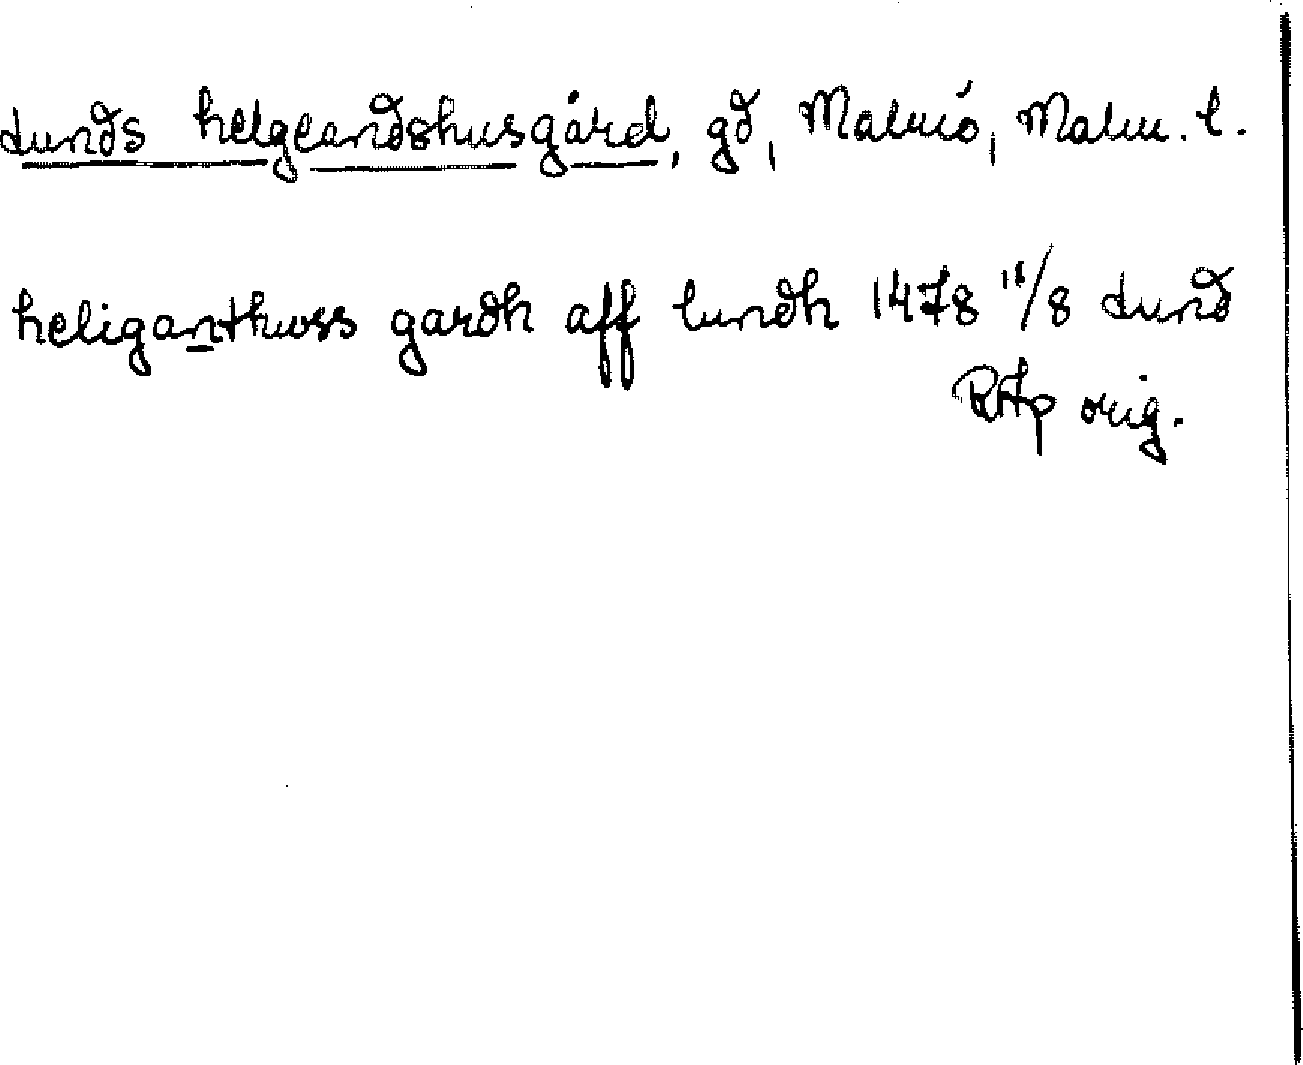 Lunds helgeandshusgård, gd, Malmö, Malm. l.
heliganthwss gardh aff lundh 1478 11/8 Lund
RAp orig.